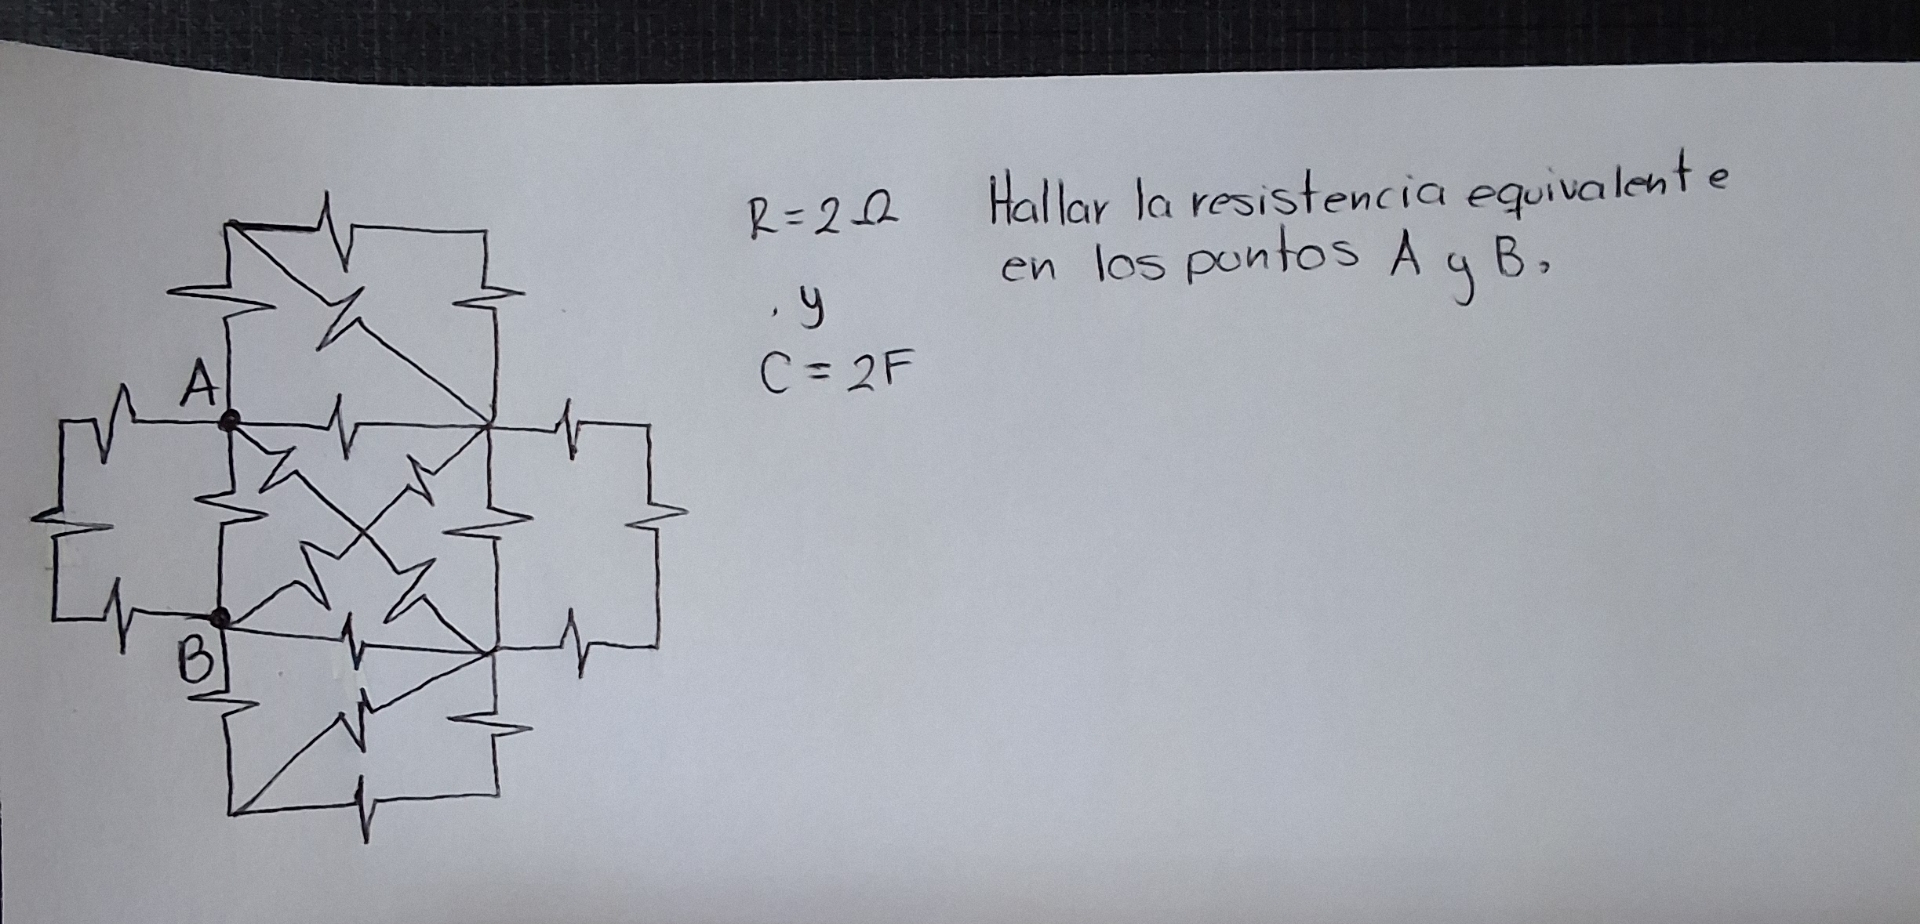 R=2Ω
. y
C = 2F
Hallar la resistencia equivalente
en los puntos A y B,
A
B